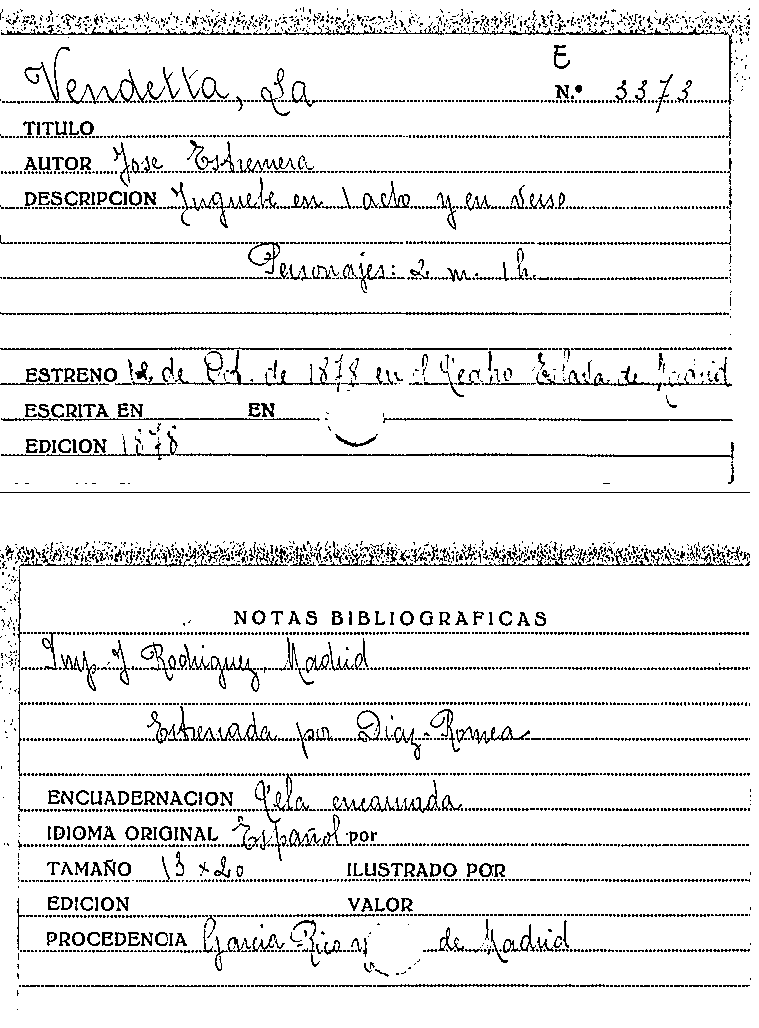 E
Vendetta, La N.º 3373
TITULO
AUTOR Jose Estremera
DESCRIPCION Juguete en 1 acto y en verso
Personajes: 2 m. 1 h.
ESTRENO de Oct. de 1878 en el Teatro Eslava de Madrid
ESCRITA EN EN
EDICION 1878
NOTAS BIBLIOGRAFICAS
Imp. J. Rodriguez, Madrid
Estrenada por Diaz-Romea
ENCUADERNACION Tela encarnada
IDIOMA ORIGINAL Español por
TAMAÑO 13 x 20 ILUSTRADO POR
EDICION VALOR
PROCEDENCIA Garcia Rico y de Madrid